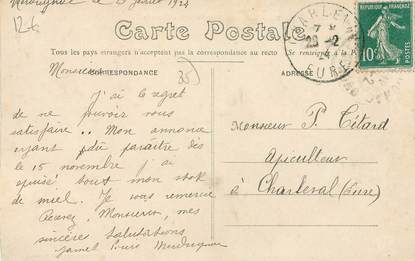 le 23 février 1924
126
Carte Postale
Tous les pays étrangers n'acceptent pas la correspondance au recto
Se renseigner à la
CORRESPONDANCE
ADRESSE
Monsieur
35
J'ai le regret
de ne pouvoir vous
satisfaire .. Mon annonce
ayant pdu paraître dès
le 15 novembre j'ai
épuisé tout mon stok
de miel. Je vous remercie
Recevez, Monsieur, mes
sincères salutations
Louis
Monsieur P. Tétard
Apiculteur
à Charleval (Eure)
CHARLEVAL
29-2
24
EURE
REPUBLIQUE FRANÇAISE
10c
POSTES